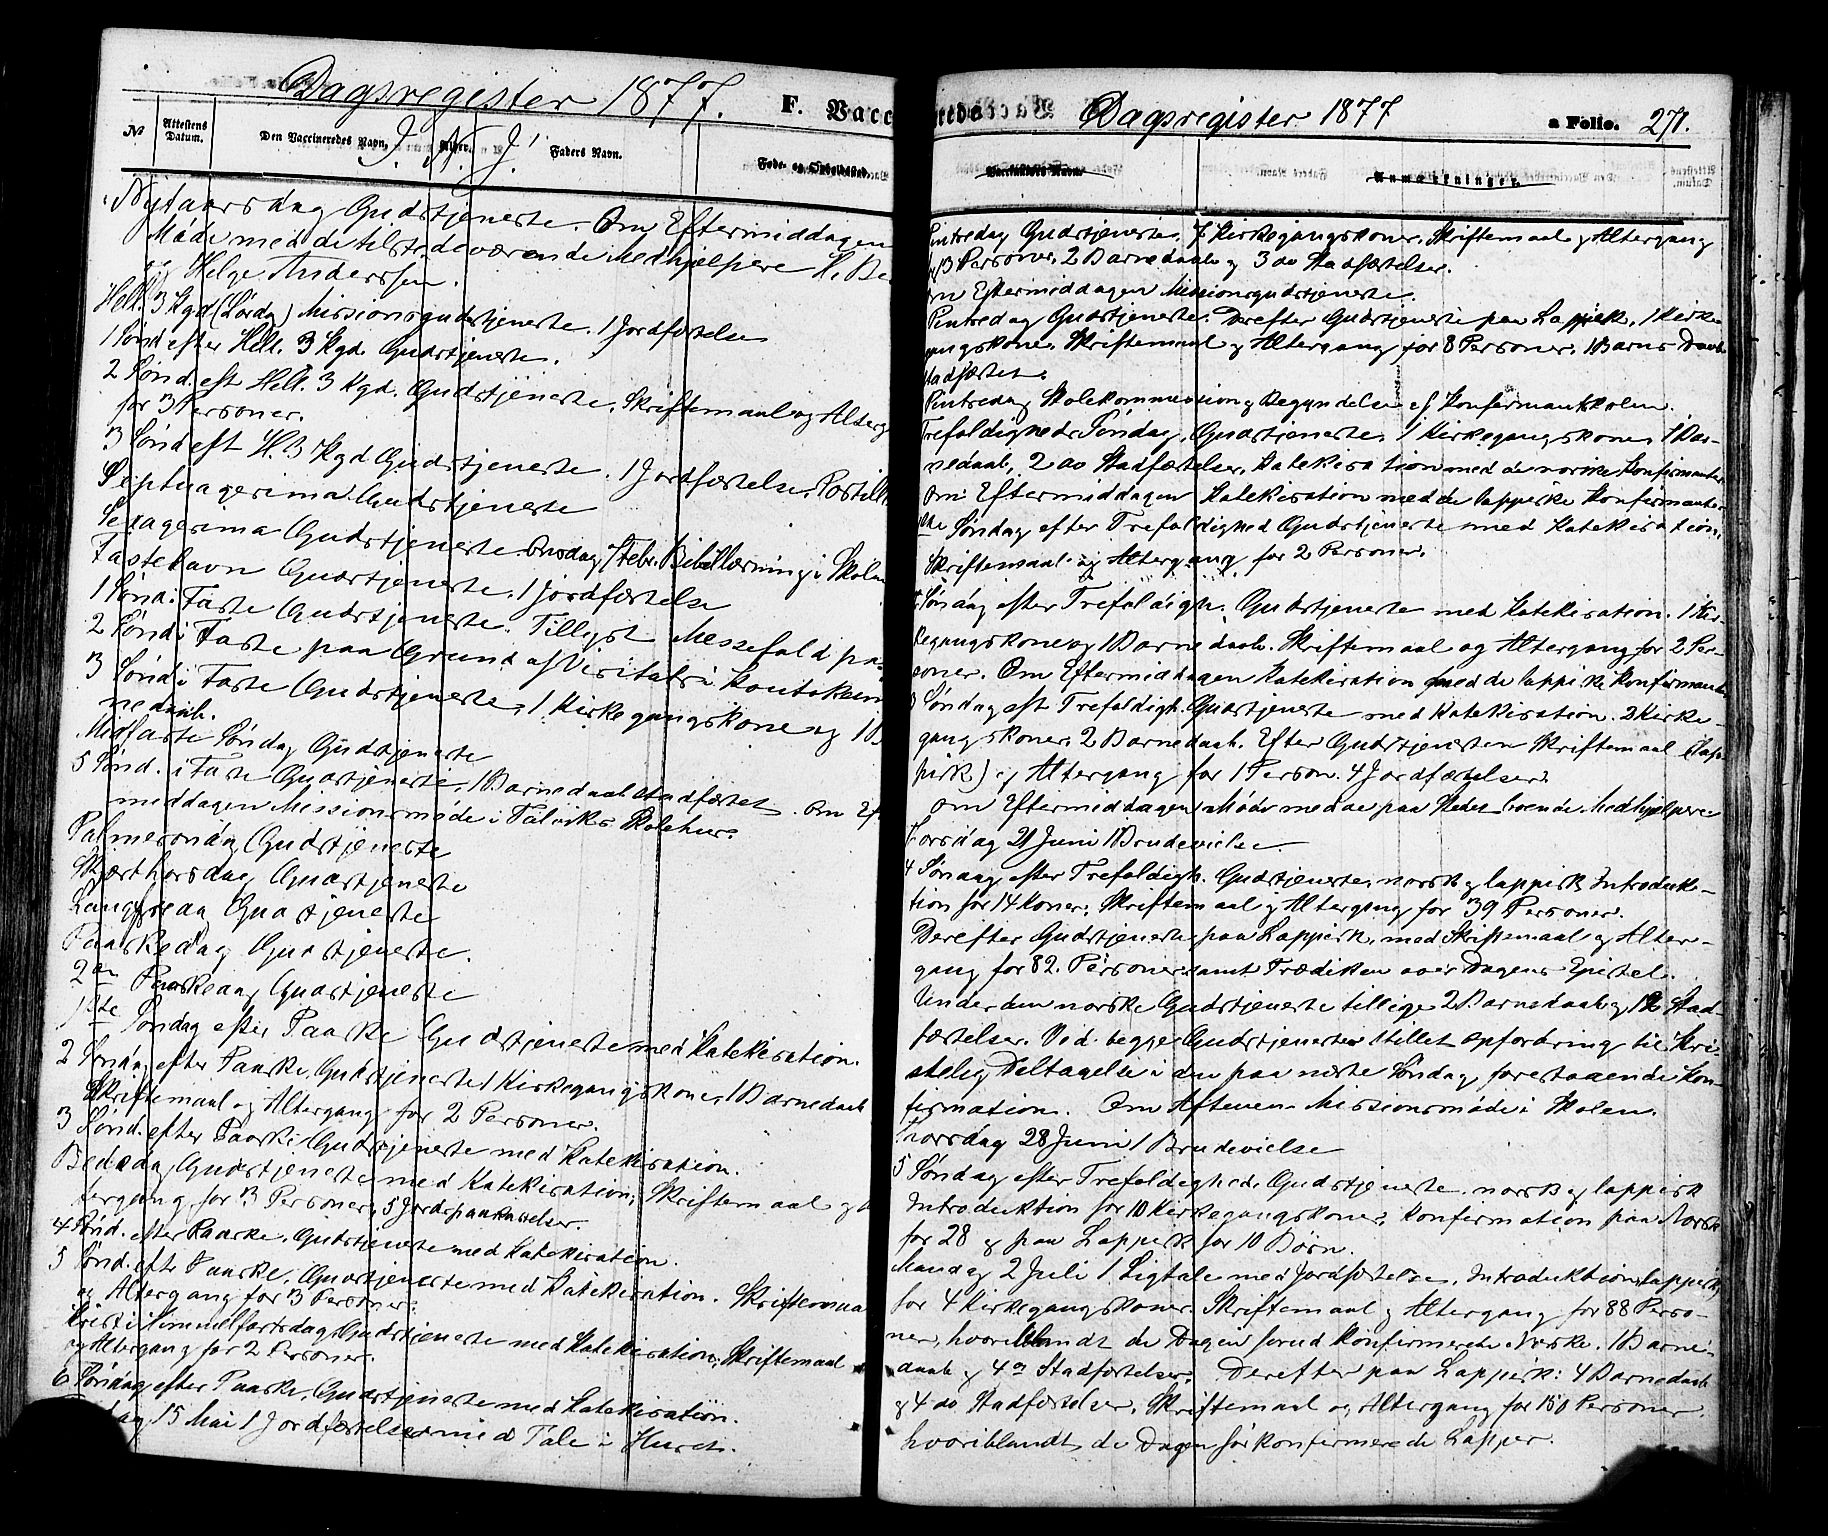 Dagsregister 1877.
F. Vacc
No
Attestens Datum.
Den Vaccineredes Navn.
Alder.
Faders Navn.
Føde- og Opholdssted.
I. N. J.
Nytaarsdag Gudstjeneste. Om Eftermiddagen
Møde med de tilstedeværende Medhjelpere H. Be
og Helge Anderssen.
Hell. 3 Kgd (Lørdag) Missionsgudstjeneste. 1 Jordfæstelse
1 Sønd efter Hell. 3 Kgd. Gudstjeneste.
2 Sønd. eft Hell. 3 Kgd. Gudstjeneste. Skriftemaal og Alterg
for 3 Personer.
3 Sønd eft H. 3 Kgd Gudstjeneste. 1 Jordfæstelse.
Septuagesima Gudstjeneste
Sexagesima Gudstjeneste Onsdag 7 Febr. Bibellæsning i Skolen
Fastelavn Gudstjeneste. 1 Jordfæstelse
1 Sønd. i Faste Gudstjeneste. Tillyst Messefald paa
2 Sønd i Faste paa Grund af Visitats i Kautokein
3 Sønd i Faste Gudstjeneste, 1 Kirkegangskone og 1 B
nedaab.
Midfaste Søndag Gudstjeneste
5 Sønd. i Faste Gudstjeneste, 1 Barnedaab stadfæstet. Om Ef
meddagen Missionsmøde i Talviks Skolehus.
Palmesøndag Gudstjeneste
Skjærthorsdag Gudstjeneste
Langfredag Gudstjeneste
Paaskedag Gudstjeneste.
2en Paaskedag Gudstjeneste
1ste Søndag efter Paaske Gudstjeneste med Katekisation.
2 Søndag efter Paaske. Gudstjeneste 1 Kirkegangskone, 1 Barnedaab
Skriftemaal og Altergang for 2 Personer.
3 Sønd. efter Paaske Gudstjeneste med Katekisation.
Bededag Gudstjeneste med Katekisation, Skriftemaal og
tergang for 3 Personer, 5 Jordspaakastelser.
4 Sønd. efter Paaske. Gudstjeneste med Katekisation.
5 Sønd. efter Paaske. Gudstjeneste med Katekisation. Skriftemaa
og Altergang for 3 Personer.
Kristi Himmelfartsdag Gudstjeneste med Katekisation, Skriftemaal
og Altergang for 2 Personer.
6 Søndag efter Paaske. Gudstjeneste med Katekisation.
15 Mai 1 Jordfæstelse med Tale i Huset.
Dagsregister 1877
a Folie. 271.
Vaccinatørens Navn.
Anmærkninger.
Pintsedag Gudstjeneste. 7 Kirkegangskoner. Skriftemaal og Altergang
13 Personer. 2 Barnedaab og 3 do Stadfæstelser.
Om Eftermiddagen Missionsgudstjeneste.
Pintsedag Gudstjeneste. Derefter Gudstjeneste paa Lappisk. 1 Kirke
gangskone. Skriftemaal og Altergang for 8 Personer. 1 Barns Daab
stadfæstet.
Pintsedag Skolekommission og Begyndelse af Konfirmantskolen.
Trefoldigheds Søndag. Gudstjeneste, 1 Kirkegangskone, 1 Bar-
nedaab, 2 do Stadfæstelser. Katekisation med de norske Konfirmanter
Om Eftermiddagen Katekisation med de lappiske Konfirmanter
Søndag efter Trefoldighed Gudstjeneste med Katekisation,
Skriftemaal og Altergang for 2 Personer.
Søndag efter Trefoldigh. Gudstjeneste med Katekisation. 1 Kir-
kegangskone og 1 Barnedaab. Skriftemaal og Altergang for 2 Per-
soner. Om Eftermiddagen Katekisation med de lappiske Konfirmanter
3 Søndag eft Trefoldigh. Gudstjeneste med Katekisation. 2 Kirke-
gangskoner, 2 Barnedaab. Efter Gudstjenesten Skriftemaal (lap-
pisk) og Altergang for 1 Person. 4 Jordfæstelser.
Om Eftermiddagen Møde med de paa Stedet boende Medhjelpere
Torsdag 21 Juni 1 Brudevielse.
4 Søndag efter Trefoldigh. Gudstjeneste, norsk og lappisk Introduk-
tion for 14 Koner. Skriftemaal og Altergang for 39 Personer.
Derefter Gudstjeneste paa Lappisk, med Skriftemaal og Alter-
gang for 82. Personer samt Prædiken over Dagens Epistel.
Under den norske Gudstjeneste tillige 2 Barnedaab og 12 Stad-
fæstelser. Ved begge Gudstjenester stillet Opfordring til Kri-
stelig Deltagelse i den paa næste Søndag forestaaende Kon-
firmation. Om Aftenen Missionsmøde i Skolen.
Torsdag 28 Juni 1 Brudevielse
5 Søndag efter Trefoldighed. Gudstjeneste norsk og lappisk
Introduktion for 10 Kirkegangskoner. Konfirmation paa Norsk
for 28 og paa Lappisk for 10 Børn.
Mandag 2 Juli 1 Ligtale med Jordfæstelse. Introduktion lappisk
for 4 Kirkegangskoner. Skriftemaal og Altergang for 88 Perso-
ner, hvoriblandt de Dagen forud Konfirmerede Norske. 1 Barne-
daab og 4 Stadfæstelser. Derefter paa Lappisk: 4 Barnedaab
og 4 do Stadfæstelser, Skriftemaal og Altergang for 150 Personer
hvoriblandt de Dagen før konfirmerede Lapper.